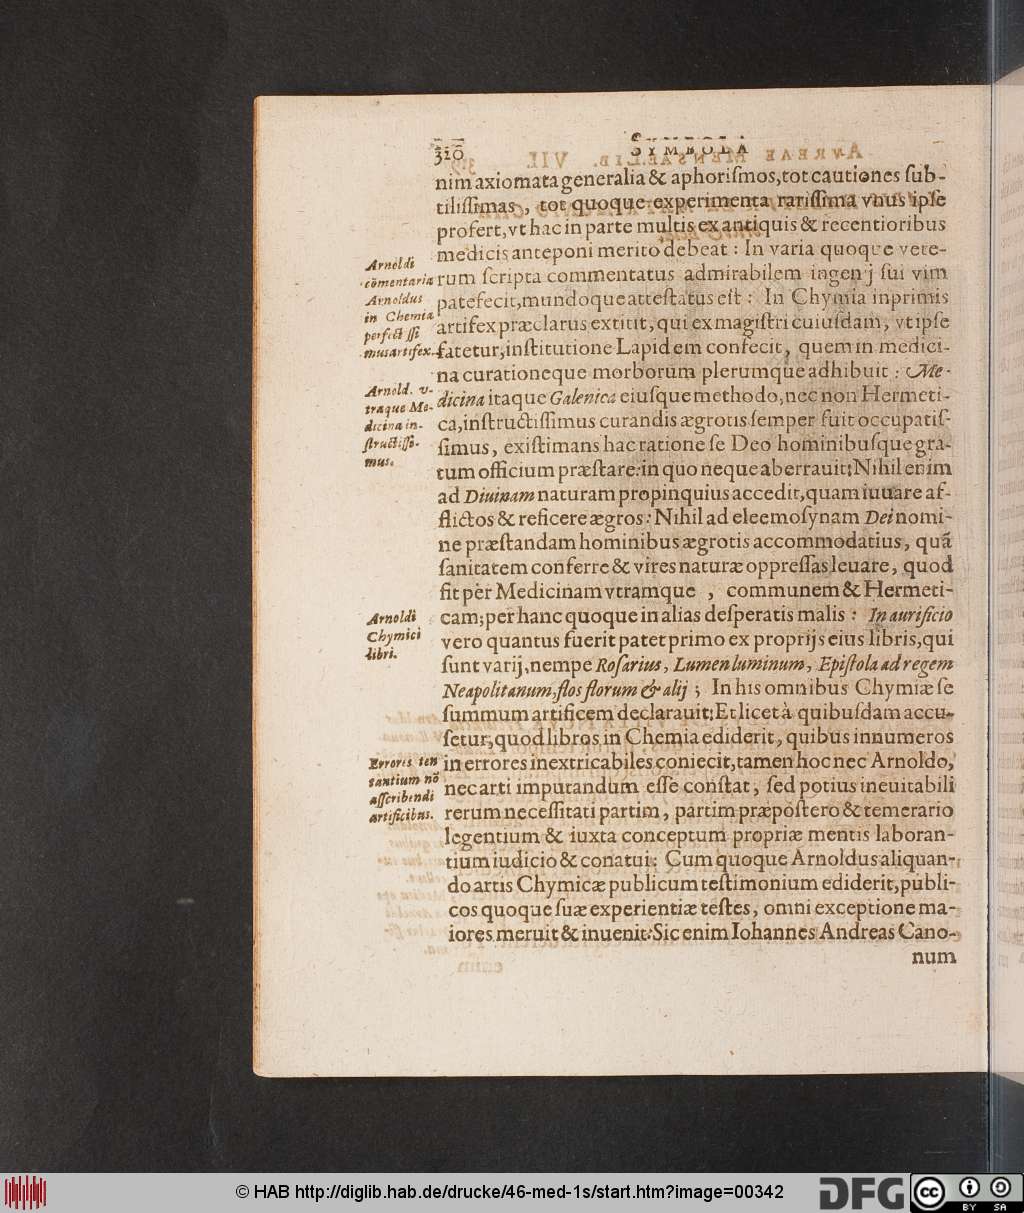 310
SYMBOLA
nim axiomata generalia & aphoriſmos, tot cautiones ſub-
tiliſſimas, tot quoque experimenta rariſſima vnus ipſe
profert, vt hac in parte multis ex antiquis & recentioribus
medicis anteponi merito debeat: In varia quoque vete-
rum ſcripta commentatus admirabilem ingenij ſui vim
patefecit, mundoque atteſtatus eſt: In Chymia inprimis
artifex præclarus extitit, qui ex magiſtri cuiuſdam, vt ipſe
fatetur, inſtitutione Lapidem confecit, quem in medici-
na curationeque morborum plerumque adhibuit: Me-
dicina itaque Galenica eiuſque methodo, nec non Hermeti-
ca, inſtructiſſimus curandis ægrotis ſemper fuit occupatiſ-
ſimus, exiſtimans hac ratione ſe Deo hominibuſque gra-
tum officium præſtare: in quo neque aberrauit: Nihil enim
ad Diuinam naturam propinquius accedit, quam iuuare af-
flictos & reficere ægros: Nihil ad eleemoſynam Dei nomi-
ne præſtandam hominibus ægrotis accommodatius, quã
ſanitatem conferre & vires naturæ oppreſſas leuare, quod
fit per Medicinam vtramque, communem & Hermeti-
cam; per hanc quoque in alias deſperatis malis: In aurificio
vero quantus fuerit patet primo ex proprijs eius libris, qui
ſunt varij, nempe Roſarius, Lumen luminum, Epiſtola ad regem
Neapolitanum, flos florum & alij; In his omnibus Chymiæ ſe
ſummum artificem declarauit: Et licet à quibuſdam accu-
ſetur, quod libros in Chemia ediderit, quibus innumeros
in errores inextricabiles coniecit, tamen hoc nec Arnoldo,
nec arti imputandum eſſe conſtat, ſed potius ineuitabili
rerum neceſſitati partim, partim præpoſtero & temerario
legentium & iuxta conceptum propriæ mentis laboran-
tium iudicio & conatui: Cum quoque Arnoldus aliquan-
do artis Chymicæ publicum teſtimonium ediderit, publi-
cos quoque ſuæ experientiæ teſtes, omni exceptione ma-
iores meruit & inuenit: Sic enim Iohannes Andreas Cano-
num
Arnoldi
cõmentaria
Arnoldus
in Chemia
perfectiſſi
mus artifex.
Arnold. v-
traque Me-
dicina in-
ſtructiſſi-
mus.
Arnoldi
Chymici
libri.
Errores ten
tantium nõ
aſſcribendi
artificibus.
© HAB http://diglib.hab.de/drucke/46-med-1s/start.htm?image=00342
DFG
cc
BY
SA